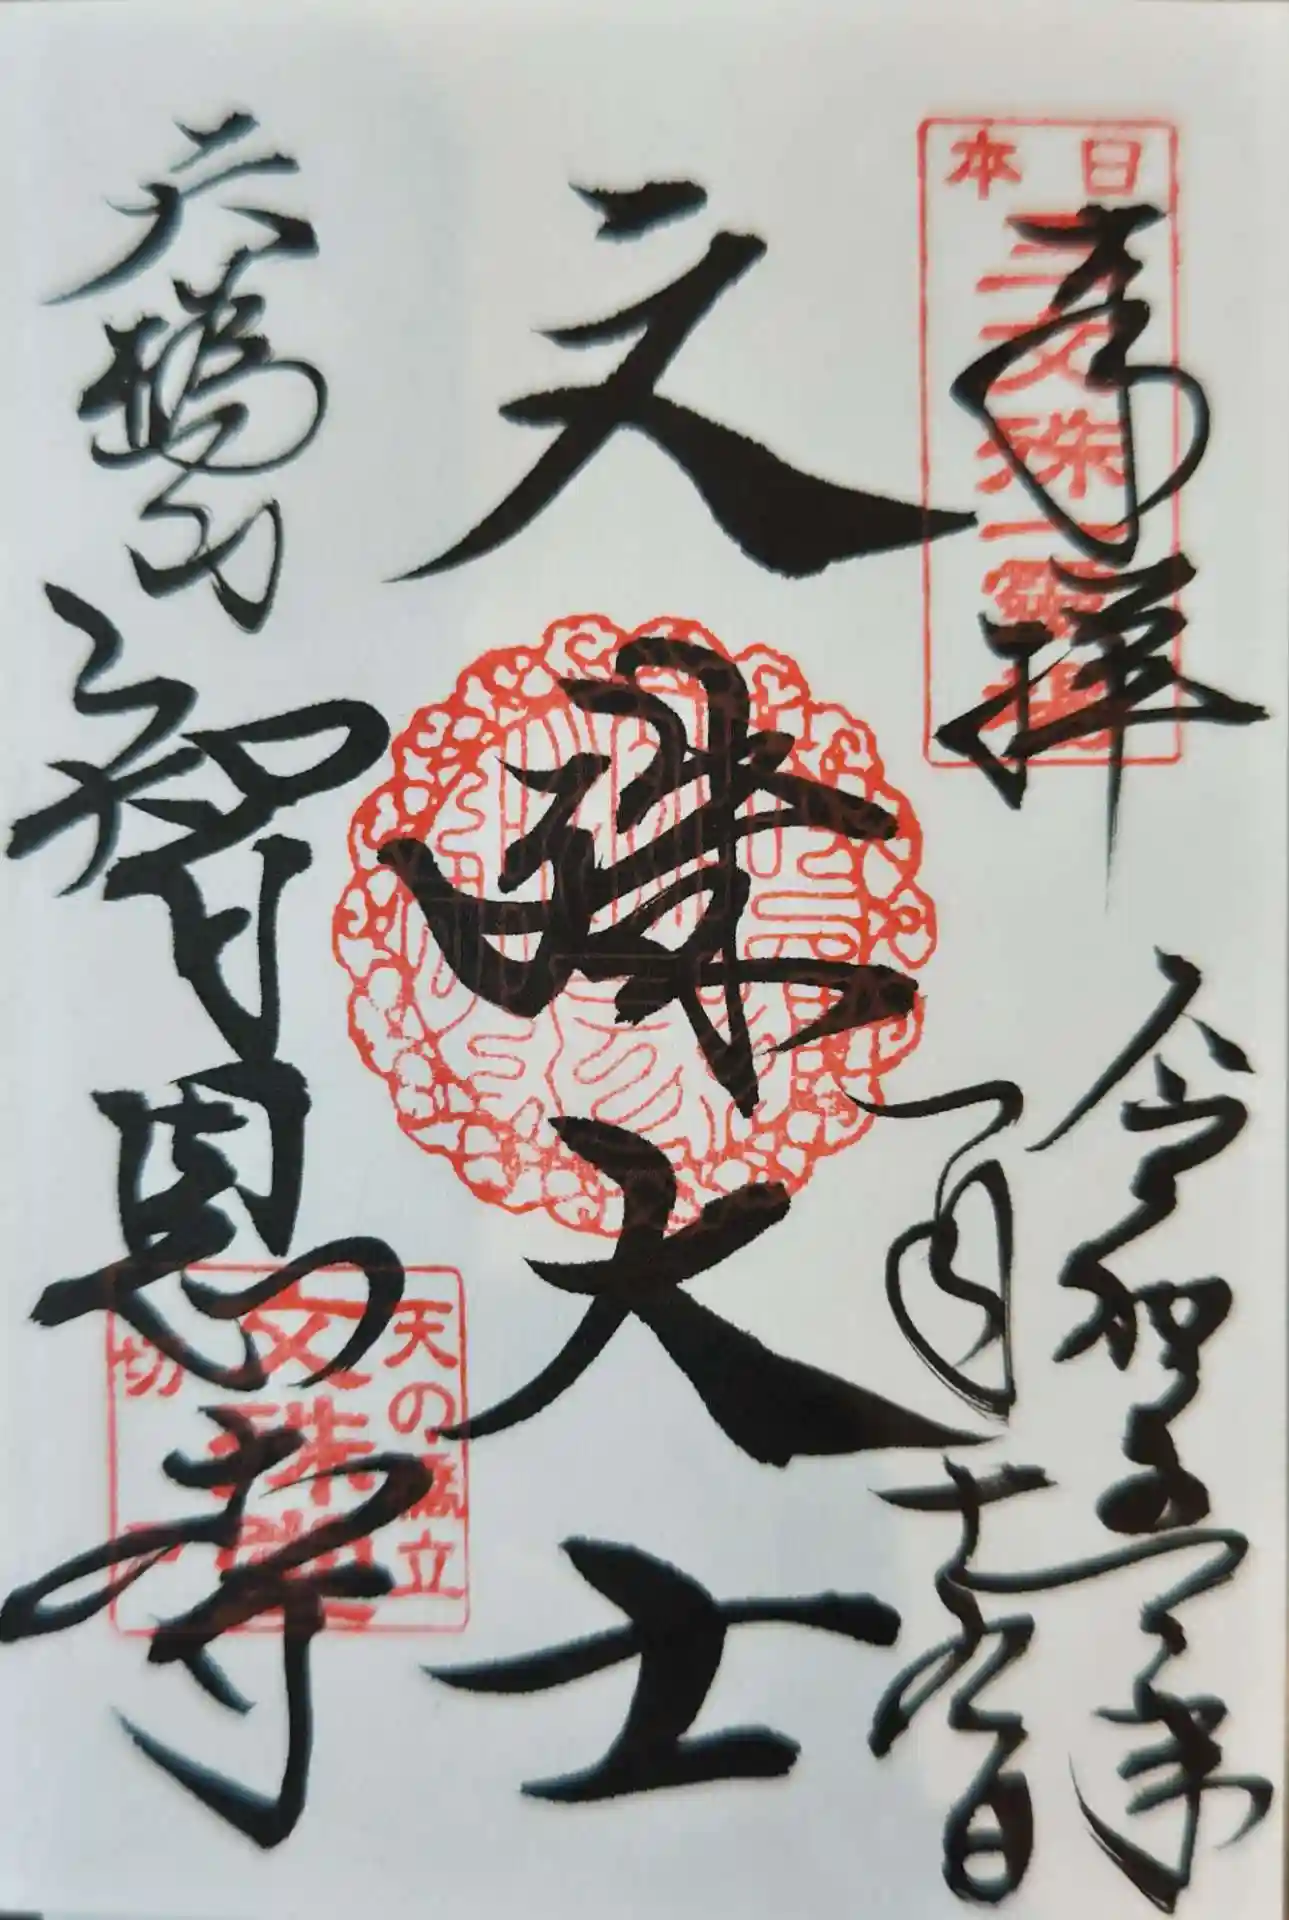 日本
三文殊一霊
奉拝
令和
年
月
日
文殊大士
天橋山
智恩寺
天の橋立
文殊堂
切戸